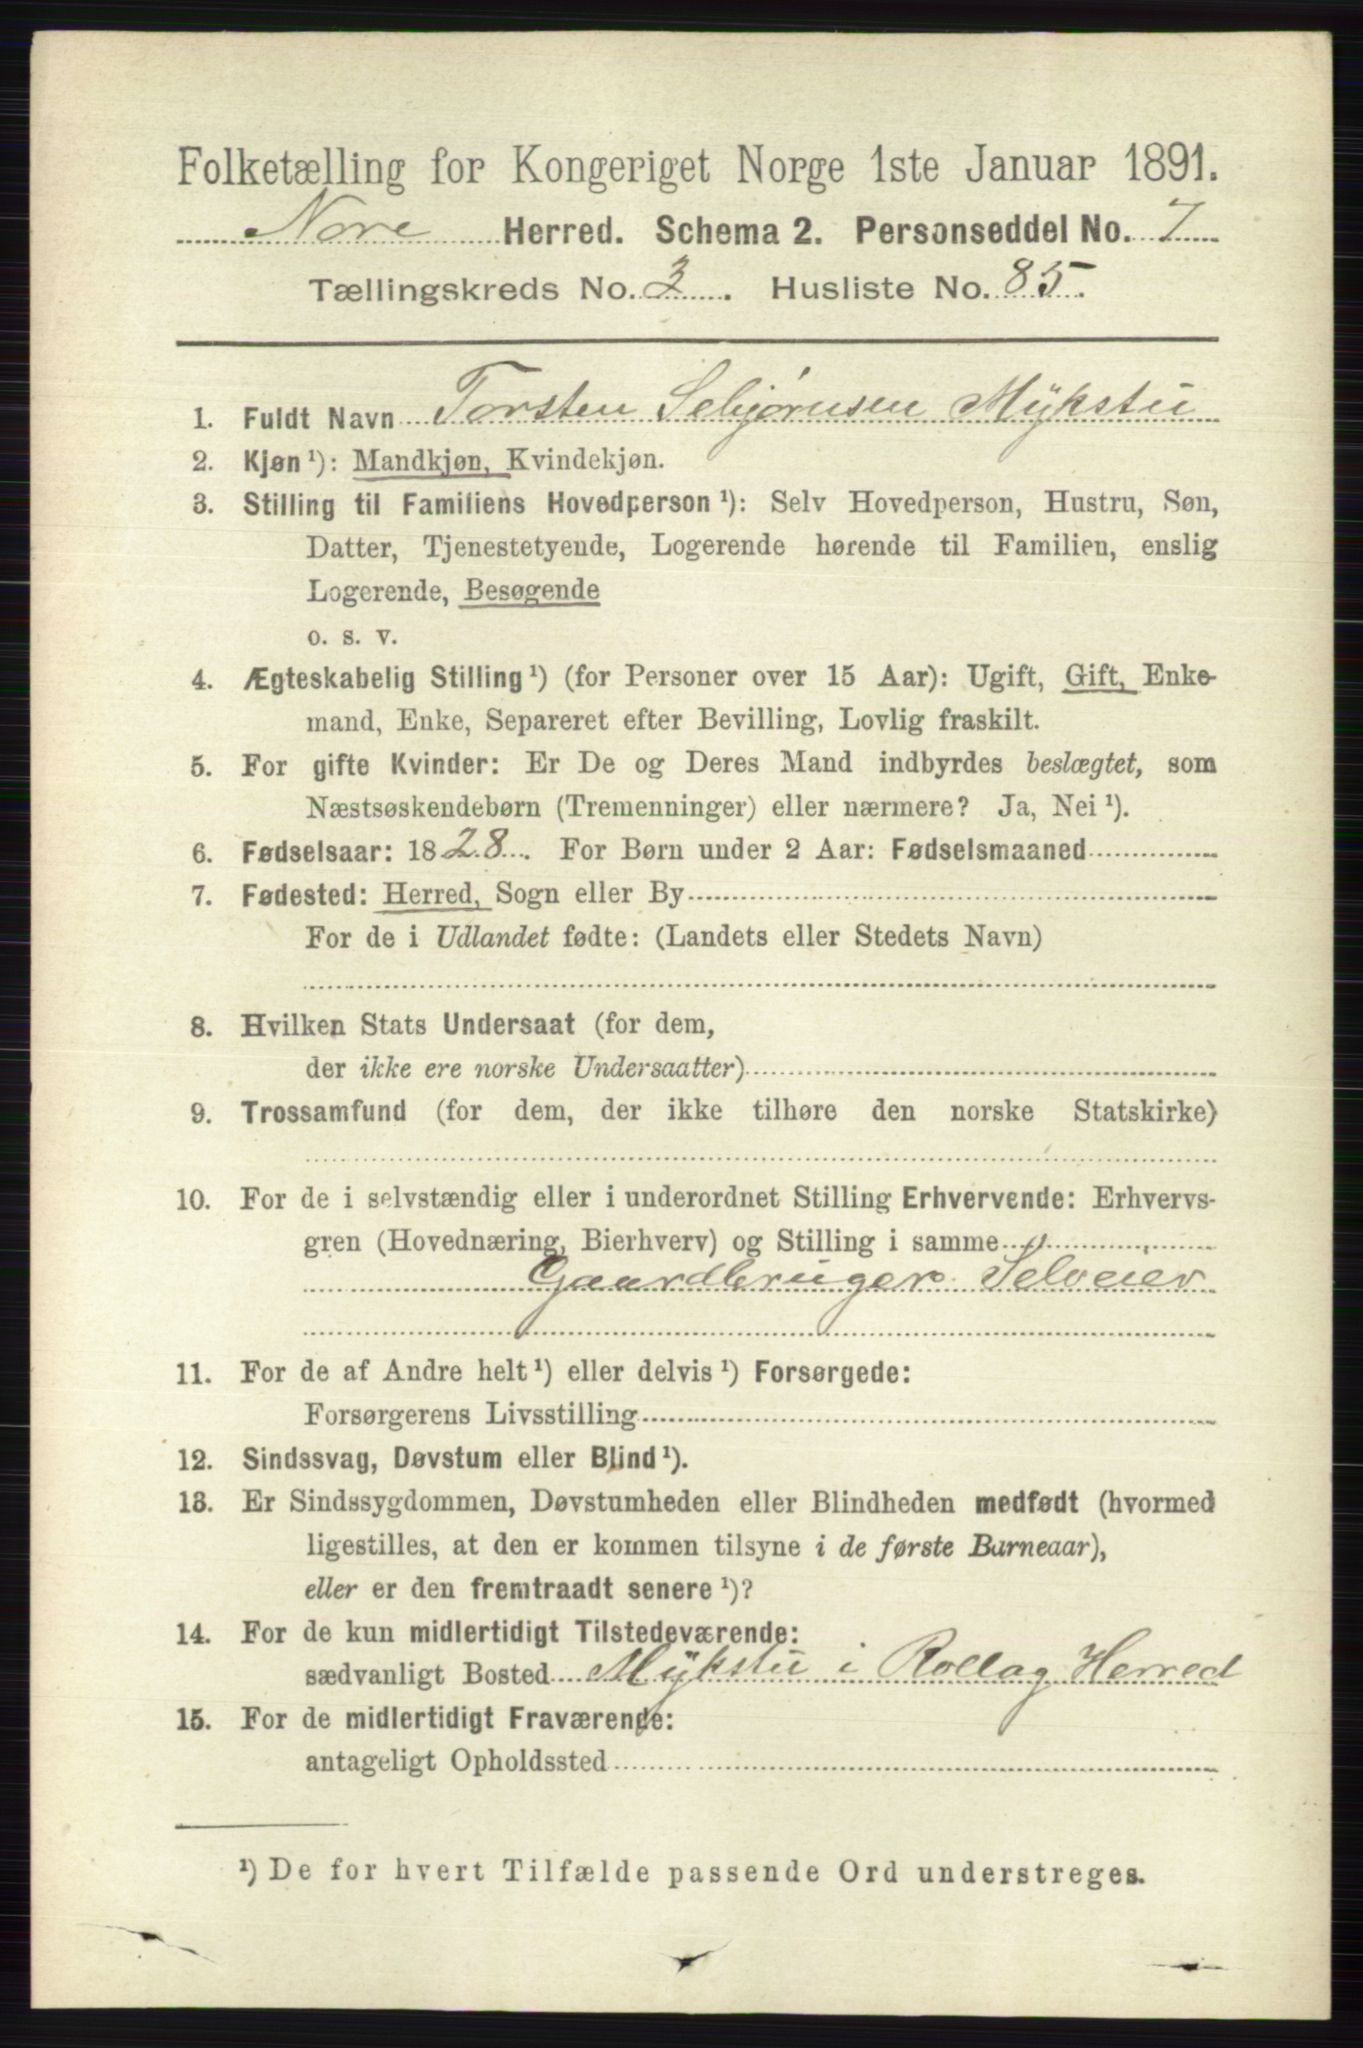 Folketælling for Kongeriget Norge 1ste Januar 1891.
Nore Herred. Schema 2. Personseddel No. 7
Tællingskreds No. 3. Husliste No. 85.
1. Fuldt Navn Torsten Sebjørnsen Mykstu
2. Kjøn ¹): Mandkjøn, Kvindekjøn.
3. Stilling til Familiens Hovedperson ¹): Selv Hovedperson, Hustru, Søn,
Datter, Tjenestetyende, Logerende hørende til Familien, enslig
Logerende, Besøgende
o. s. v.
4. Ægteskabelig Stilling ¹) (for Personer over 15 Aar): Ugift, Gift, Enke-
mand, Enke, Separeret efter Bevilling, Lovlig fraskilt.
5. For gifte Kvinder: Er De og Deres Mand indbyrdes beslægtet, som
Næstsøskendebørn (Tremenninger) eller nærmere? Ja, Nei ¹).
6. Fødselsaar: 1828. For Børn under 2 Aar: Fødselsmaaned
7. Fødested: Herred, Sogn eller By
For de i Udlandet fødte: (Landets eller Stedets Navn)
8. Hvilken Stats Undersaat (for dem,
der ikke ere norske Undersaatter)
9. Trossamfund (for dem, der ikke tilhøre den norske Statskirke)
10. For de i selvstændig eller i underordnet Stilling Erhvervende: Erhvervs-
gren (Hovednæring, Bierhverv) og Stilling i samme
Gaardbruger. Selveier
11. For de af Andre helt ¹) eller delvis ¹) Forsørgede:
Forsørgerens Livsstilling
12. Sindssvag, Døvstum eller Blind ¹).
13. Er Sindssygdommen, Døvstumheden eller Blindheden medfødt (hvormed
ligestilles, at den er kommen tilsyne i de første Barneaar),
eller er den fremtraadt senere ¹)?
14. For de kun midlertidigt Tilstedeværende:
sædvanligt Bosted Mykstu i Rollag Herred
15. For de midlertidigt Fraværende:
antageligt Opholdssted
¹) De for hvert Tilfælde passende Ord understreges.